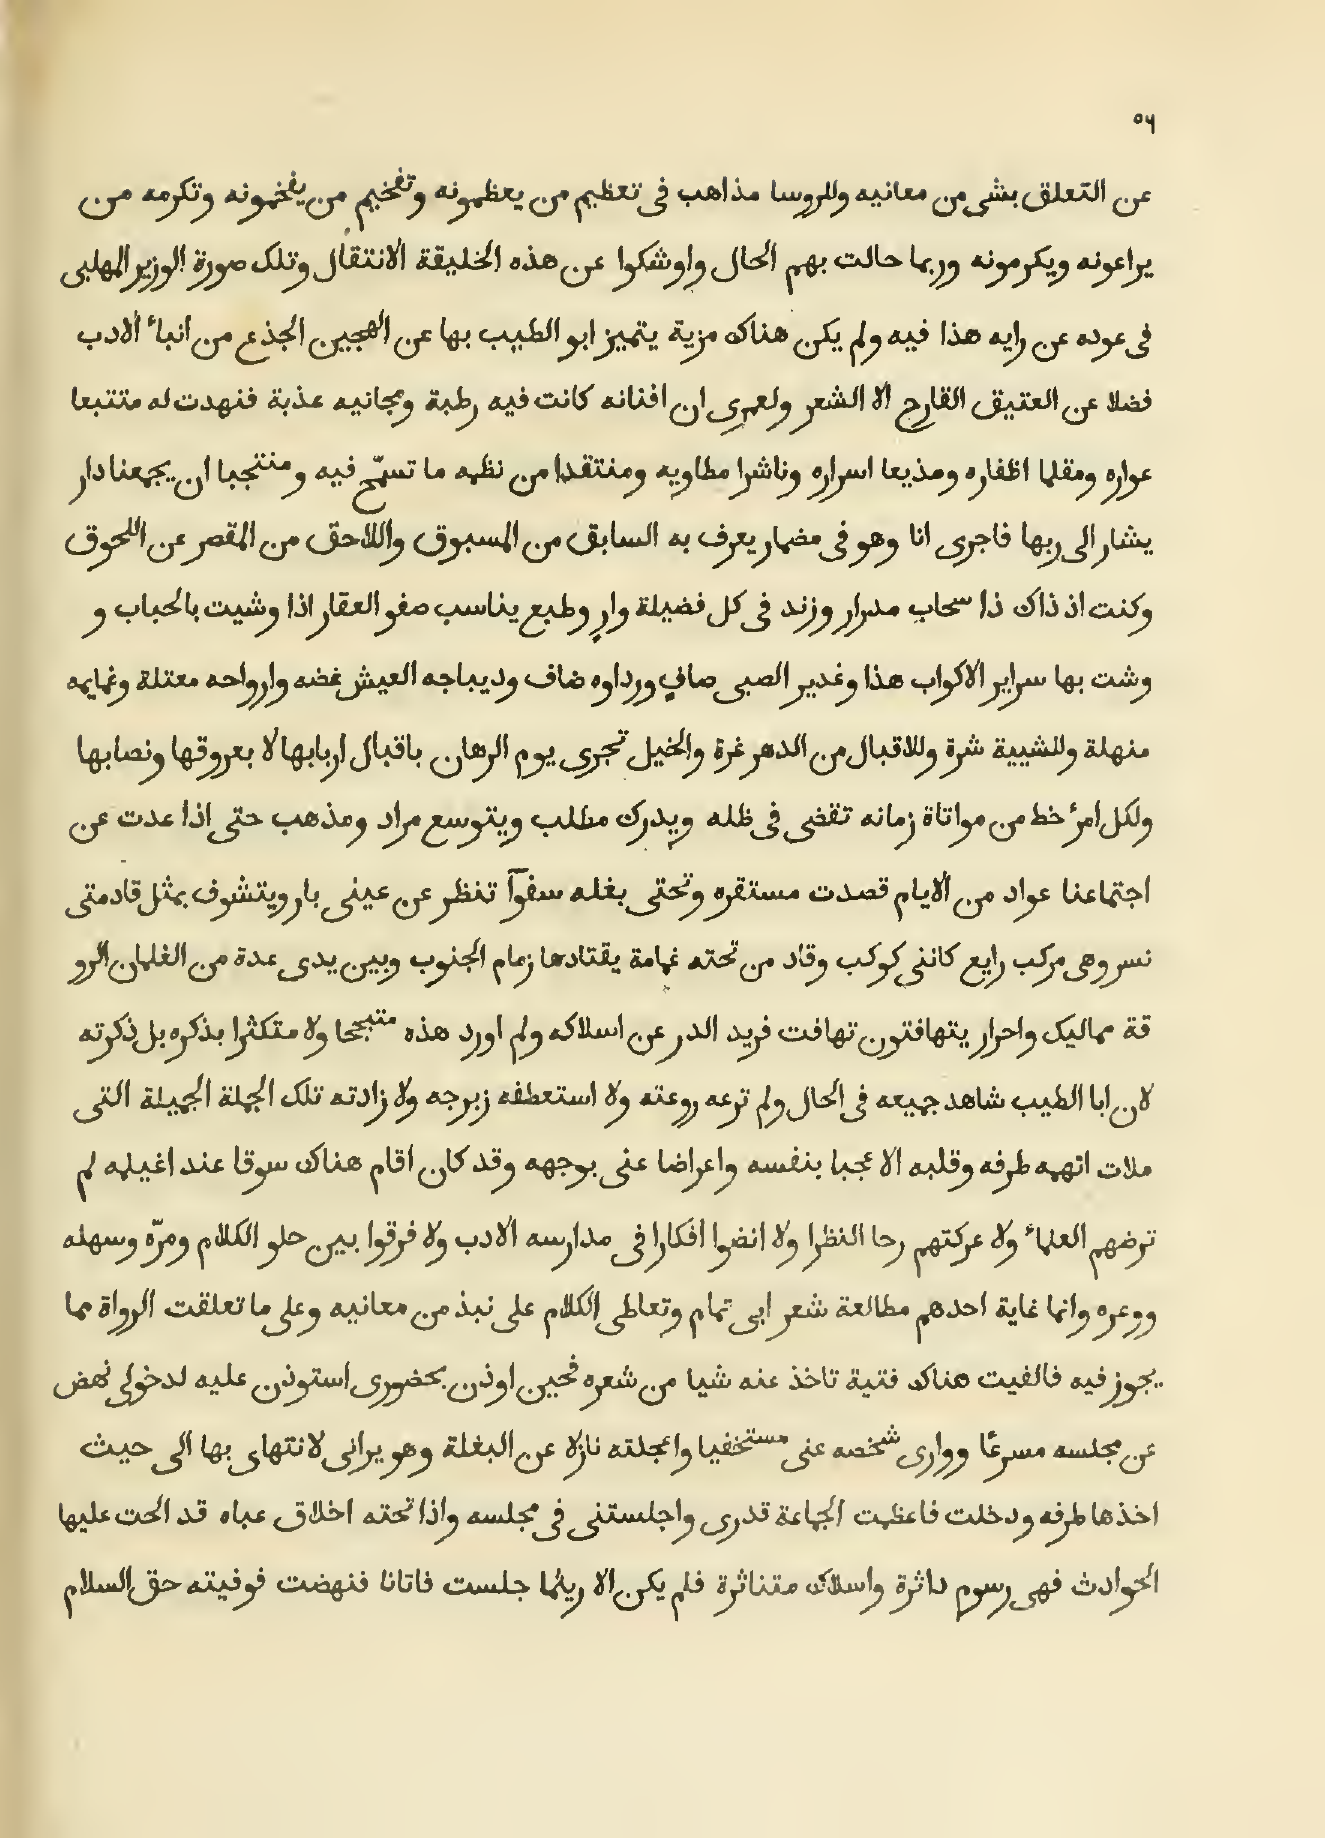 ٥٦
عن التعلق بشى من معانيه وللروسا مذاهب فى تعظيم من يعظمونه وتفخيم من يفخمونه وتكرمه من
يراعونه ويكرمونه وربما حالت بهم الحال واوشكوا عن هذه الخليقة الانتقال وتلك صورة الوزير المهلبى
فى عوده عن رايه هذا فيه ولم يكن هناك مزية يتميز ابو الطيب بها عن الهجين الجذع من انباء الادب
فضلا عن العتيق القارح الا الشعر ولعمرى ان افنانه كانت فيه رطبة ومجانيه عذبة فنهدت له متتبعا
عواره ومقلما اظفاره ومذيعا اسراره وناشرا مطاويه ومنتقدا من نظمه ما تسمّح فيه ومنتجبا ان يجمعنا دار
يشار الى ربها فاجرى انا وهو فى مضمار يعرف به السابق من المسبوق واللاحق من المقصر عن اللحوق
وكنت اذ ذاك ذا سحاب مدرار وزند فى كل فضيلة وارٍ وطبع يناسب صفو العقار اذا وشيت بالحباب و
وشت بها سراير الاكواب هذا وغدير الصبى صافٍ ورداوه ضاف وديباجه العيش غضه وارواحه معتلة وغمايمه
منهلة وللشبيبة شرة وللاقبال من الدهر غرة والخيل تجرى يوم الرهان باقبال اربابها لا بعروقها ونصابها
ولكل امرء خط من مواتاة زمانه تقضى فى ظله ويدرك مطلب ويتوسع مراد ومذهب حتى اذا عدت عن
اجتماعنا عواد من الايام قصدت مستقره وتحتى بغله سفوآ تنظر عن عينى بار ويتشوف بمثل قادمتى
نسر وهى مركب رايع كاننى كوكب وقاد من تحته غمامة يقتادها زمام الجنوب وبين يدى عدة من الغلمان الرو
قة مماليك واحرار يتهافتون تهافت فريد الدر عن اسلاكه ولم اورد هذه متبجحا ولا متكثرا بذكره بل ذكرته
لان ابا الطيب شاهد جميعه فى الحال ولم ترعه روعته ولا استعطفه زبرجه ولا زادته تلك الجملة الجميلة التى
ملات اتهمه طرفه وقلبه الا عجبا بنفسه واعراضا عنى بوجهه وقد كان اقام هناك سوقا عند اغيلمه لم
ترضهم العلماء ولا عركتهم رحا النظرا ولا انضوا افكارا فى مدارسه الادب ولا فرقوا بين حلو الكلام ومرّه وسهله
ووعره وانما غاية احدهم مطالعة شعر ابى تمام وتعاطى الكلام على نبذ من معانيه وعلى ما تعلقت الرواة مما
يجوز فيه فالفيت هناك فتية تاخذ عنه شيا من شعره فحين اوذن بحضورى استوذن عليه لدخولى نهض
عن مجلسه مسرعًا ووارى شخصه عنى مستخفيا واعجلته نازلا عن البغلة وهو يرانى لانتهاى بها الى حيث
اخذها طرفه ودخلت فاعظمت الجماعة قدرى واجلستنى فى مجلسه واذا تحته اخلاق عباه قد الحت عليها
الحوادث فهى رسوم داثرة واسلاك متناثرة فلم يكن الا ريثما جلست فاتانا فنهضت فوفيته حق السلام